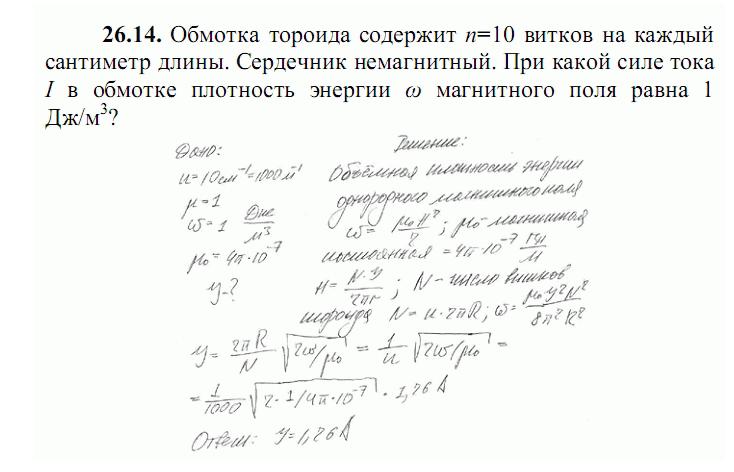 26.14. Обмотка тороида содержит n=10 витков на каждый
сантиметр длины. Сердечник немагнитный. При какой силе тока
I в обмотке плотность энергии ω магнитного поля равна 1
Дж/м³?
Дано:
n=10см⁻¹=1000м⁻¹
μ=1
ω=1 Дж/м³
μ₀=4π·10⁻⁷
У-?
Решение:
Объёмная плотность энергии
однородного магнитного поля
ω=μ₀H²/2; μ₀-магнитная
постоянная =4π·10⁻⁷ Гн/м
H=N·У/2πr; N-число витков
тороида N=n·2πR; ω=μ₀У²N²/8π²R²
У=2πR/N √2ω/μ₀ = 1/n √2ω/μ₀ =
=1/1000 √2·1/4π·10⁻⁷ · 1,26 А
Ответ: У=1,26А